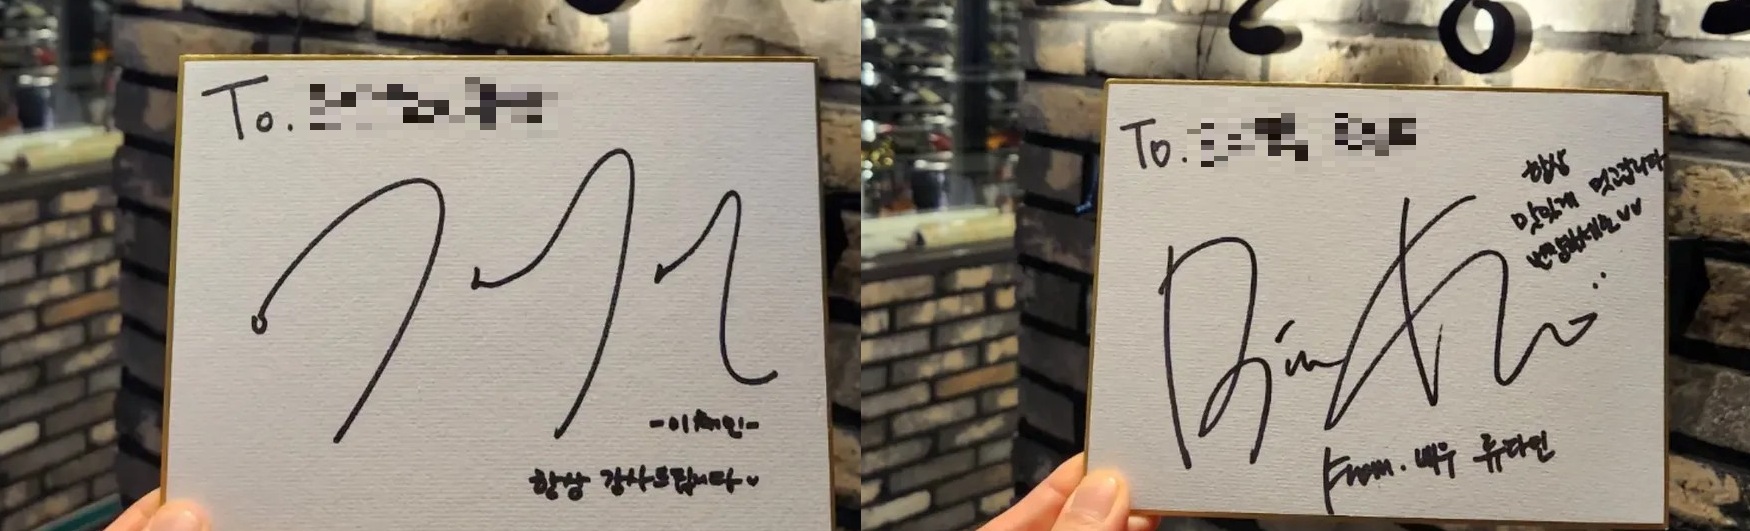 To.
-이채민-
항상 감사드립니다♥
To.
항상
맛있게 먹고갑니다
번영하세요♥♥
From. 배우 류다인